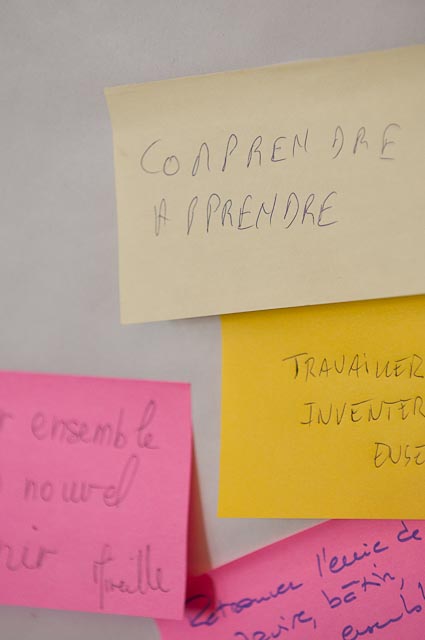 COMPRENDRE
APPRENDRE
TRAVAILLER
INVENTER
ENSE
r ensemble
nouvel
nir Mireille
Retrouver l'envie de
bâtir,
ensembl